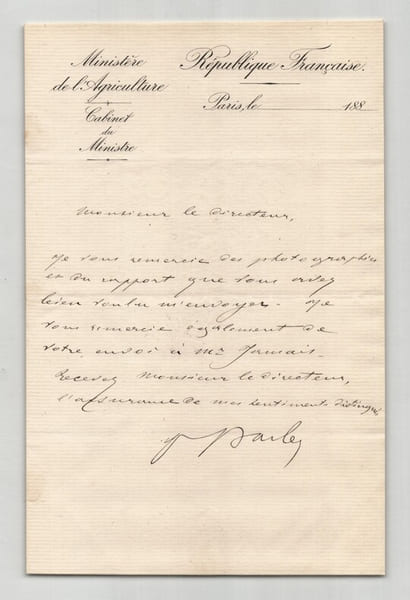 Ministère
de l'Agriculture
Cabinet
du
Ministre
République Française.
Paris, le 188
Monsieur le directeur,
Je vous remercie des photographies
et du rapport que vous avez
bien voulu m'envoyer. Je
vous remercie également de
votre envoi à Mr
Recevez Monsieur le directeur,
l'assurance de mes sentiments distingués